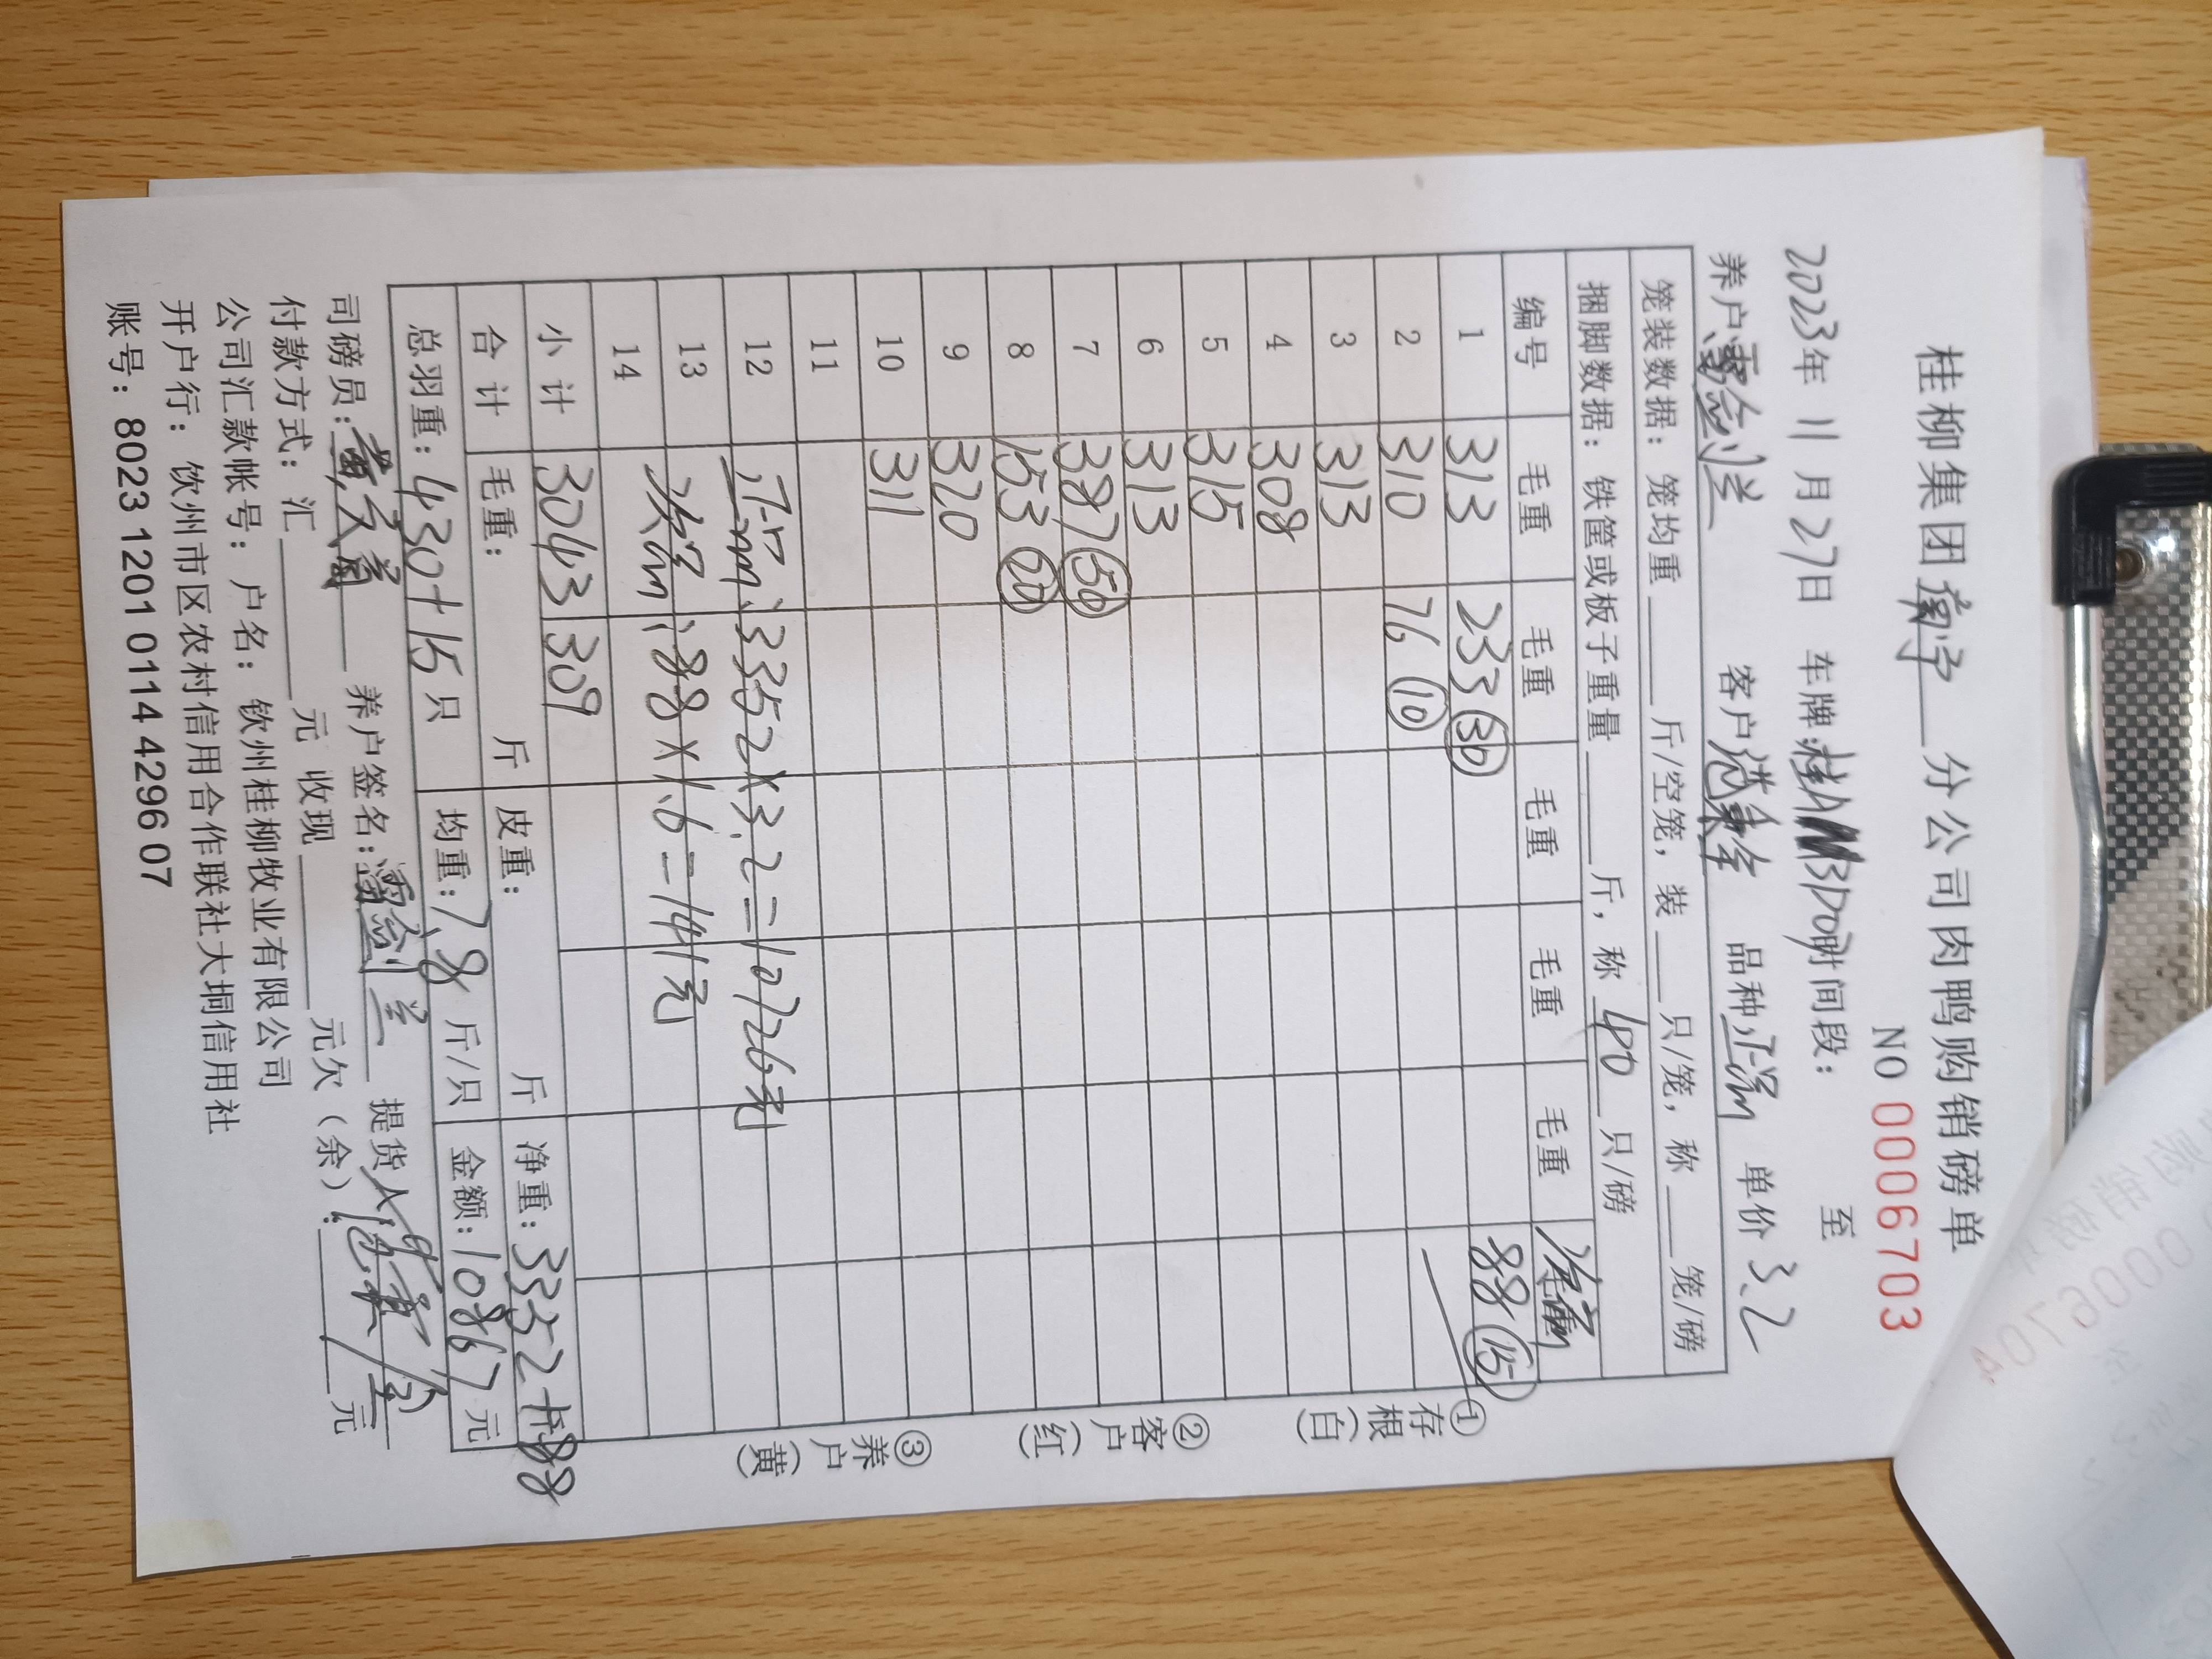 桂柳集团南宁分公司肉鸭购销磅单
NO 0006703
2023年11月27日 车牌: 时间段: 至
养户 客户 品种 单价3.2
笼装数据: 笼均重 斤/空笼, 装 只/笼, 称 笼/磅
捆脚数据: 铁筐或板子重量 斤, 称 40 只/磅
编号 毛重 毛重 毛重 毛重 毛重
1 313 233 (30) 88 (15)
2 310 76 (10)
3 313
4 308
5 315
6 313
7 387 (50)
8 153 (20)
9 320
10 311
11
12 3352×3.2=10726元
13 88×1.6=141元
14
小计 3043 309
合计 毛重: 斤 皮重: 斤 净重: 3352+88
总羽重: 430+15只 均重: 7.8 斤/只 金额: 10867元
司磅员: 养户签名: 提货人
付款方式: 汇 元 收现 元欠(余): 元
公司汇款帐号: 户名: 钦州桂柳牧业有限公司
开户行: 钦州市区农村信用合作联社大垌信用社
账号: 8023 1201 0114 4296 07
①存根(白)
②客户(红)
③养户(黄)